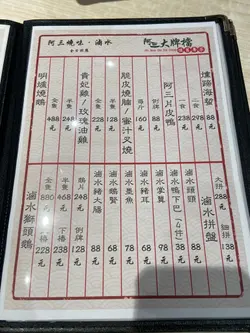 阿三燒味·滷水
阿三大牌檔
燻蹄海蜇
一份
88元
阿三片皮鴨
一食
238元
二食
脆皮燒腩/蜜汁叉燒
例牌
98元
半斤
160元
貴妃雞/玫瑰油雞
例牌
半隻
248元
全隻
468元
明爐燒鵝
半隻
248元
全隻
488元
滷水拼盤
大拼
288元
細拼
138元
滷水頭頸
88元
滷水鴨下巴(6件)
138元
滷水掌翼
68元
滷水豬耳
68元
滷水墨魚
78元
滷水鵝腎
78元
滷水豬大腸
88元
滷水獅頭鵝
全隻
880元
半隻
468元
鵝片
248元
上檔
下檔
238元
例牌
128元